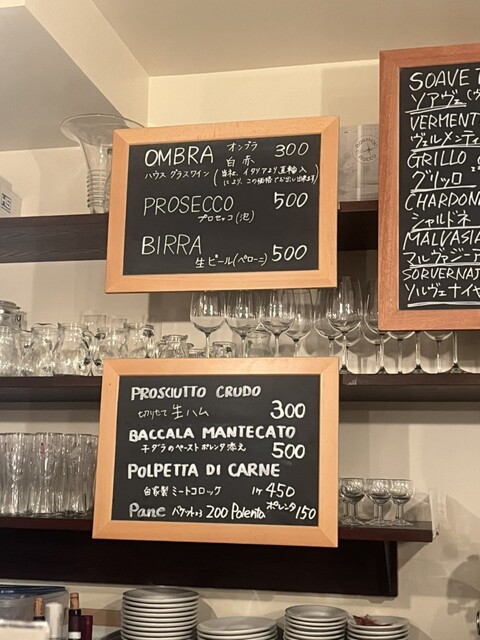 OMBRA オンブラ 300
白 赤
ハウス グラスワイン (当社、イタリアより直輸入
により、この価格でお出し出来ます)
PROSECCO 500
プロセッコ(泡)
BIRRA
生ビール(ペローニ) 500
PROSCIUTTO CRUDO
切りたて 生ハム 300
BACCALA MANTECATO
干ダラのペースト ポレンタ添え 500
POLPETTA DI CARNE
自家製 ミートコロッケ 1ケ 450
Pane バゲット 200 Polenta ポレンタ 150
SOAVE
ソアヴェ
VERMENT
ヴェルメンティ
GRILLO
グリッロ
CHARDON
シャルドネ
MALVASIA
マルヴァジーア
SORVERNA
ソルヴェナイヤ